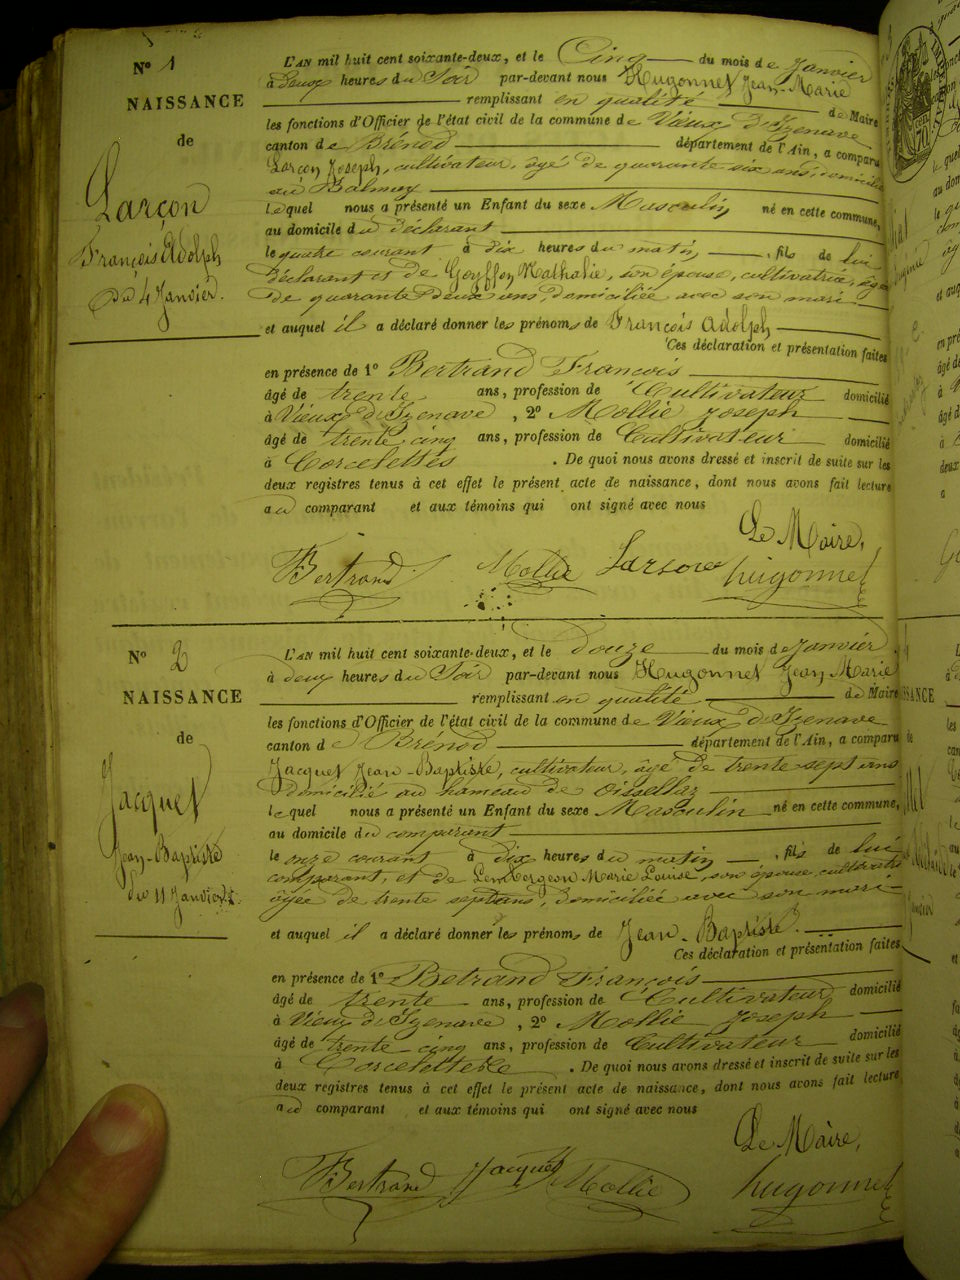 Nº 1
NAISSANCE
de
Larçon
François Adolph
du 4 Janvier.
L'AN mil huit cent soixante-deux, et le Cinq du mois de Janvier
à deux heures du Soir par-devant nous Hugonnet Jean-Marie
remplissant en qualité de Maire
les fonctions d'Officier de l'état civil de la commune de Vieux d'Izenave
canton de Brénod département de l'Ain, a comparu
Larçon Joseph, cultivateur, âgé de quarante six ans, domicilié
au Balmay
Lequel nous a présenté un Enfant du sexe Masculin né en cette commune,
au domicile du déclarant
le quatre courant à dix heures du matin, fils de lui
déclarant et de Goyffon Nathalie, son épouse, cultivatrice, âgée
de quarante deux ans, domiciliée avec son mari
et auquel il a déclaré donner les prénoms de François Adolph
Ces déclaration et présentation faites
en présence de 1º Bertrand François
âgé de trente ans, profession de Cultivateur domicilié
à Vieux d'Izenave, 2º Mollie Joseph
âgé de trente cinq ans, profession de Cultivateur domicilié
à Corcelettes. De quoi nous avons dressé et inscrit de suite sur les
deux registres tenus à cet effet le présent acte de naissance, dont nous avons fait lecture
au comparant et aux témoins qui ont signé avec nous
Le Maire,
Bertrand Mollie Larson hugonnet
Nº 2
NAISSANCE
de
Jacquet
Jean-Baptiste
du 11 Janvier.
L'AN mil huit cent soixante-deux, et le douze du mois de Janvier
à deux heures du Soir par-devant nous Hugonnet Jean Marie
remplissant en qualité de Maire
les fonctions d'Officier de l'état civil de la commune de Vieux d'Izenave
canton de Brénod département de l'Ain, a comparu
Jacquet Jean-Baptiste, cultivateur, âgé de trente sept ans
domicilié au hameau de Oissellaz
lequel nous a présenté un Enfant du sexe Masculin né en cette commune,
au domicile du comparant
le onze courant à dix heures du matin, fils de lui
comparant, et de Marie Louise, son épouse, cultivatrice
âgée de trente sept ans, domiciliée avec son mari
et auquel il a déclaré donner les prénoms de Jean-Baptiste.
Ces déclaration et présentation faites
en présence de 1º Betrand François
âgé de trente ans, profession de Cultivateur domicilié
à Vieux d'Izenave, 2º Mollie Joseph
âgé de trente cinq ans, profession de Cultivateur domicilié
à Corcelettes. De quoi nous avons dressé et inscrit de suite sur les
deux registres tenus à cet effet le présent acte de naissance, dont nous avons fait lecture
au comparant et aux témoins qui ont signé avec nous
Le Maire,
Bertrand Jacquet Mollie hugonnet